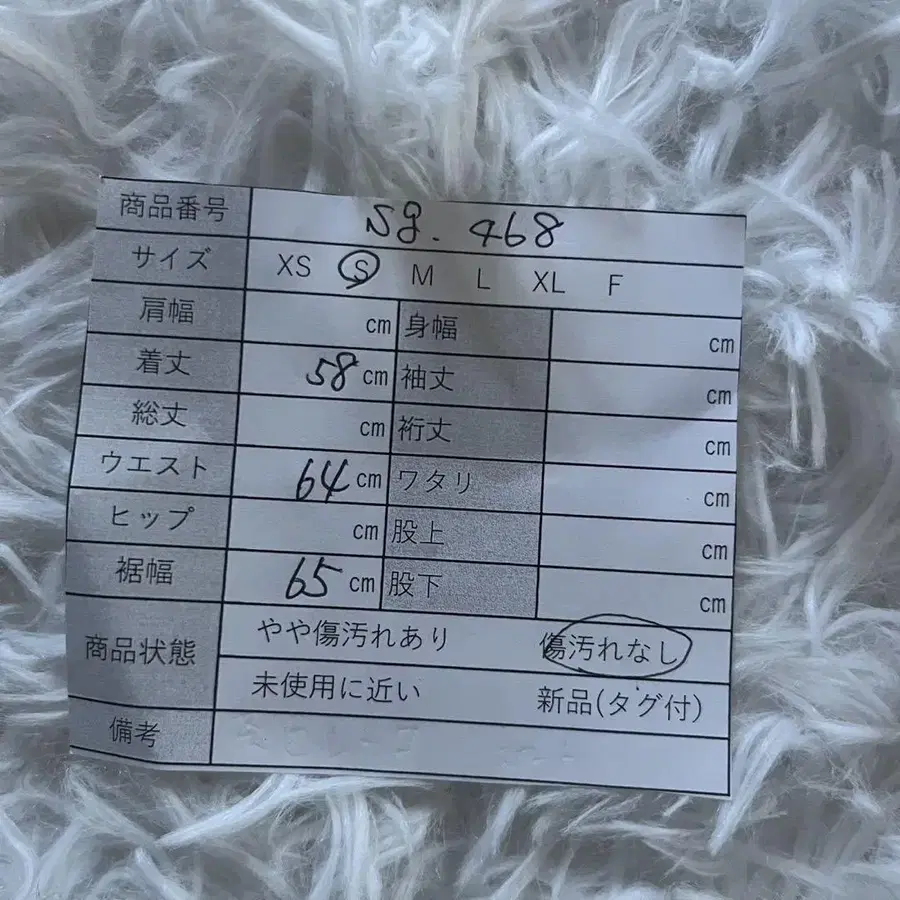 商品番号 sg. 468
サイズ XS S M L XL F
肩幅 cm 身幅 cm
着丈 58 cm 袖丈 cm
総丈 cm 裄丈 cm
ウエスト 64 cm ワタリ cm
ヒップ cm 股上 cm
裾幅 65 cm 股下 cm
商品状態 やや傷汚れあり 傷汚れなし
未使用に近い 新品(タグ付)
備考